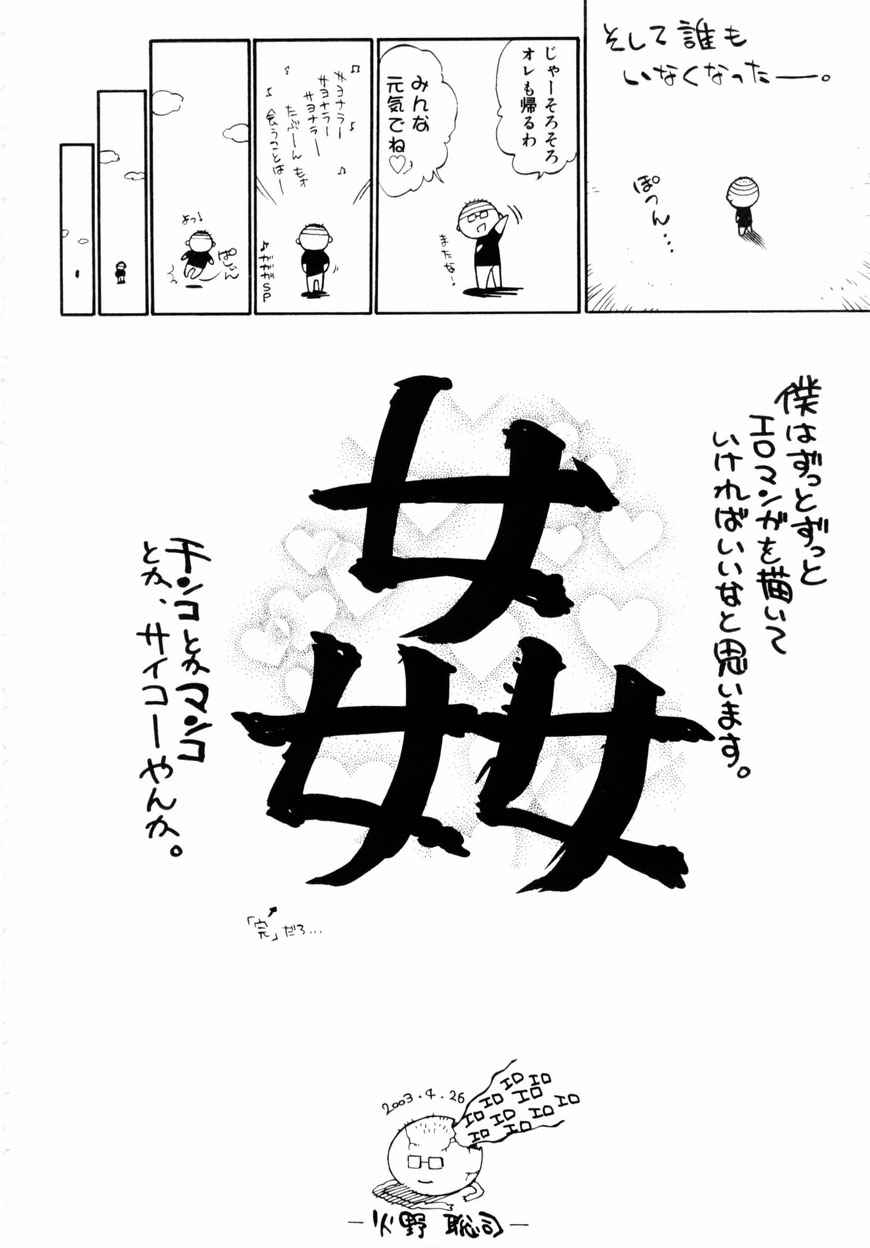 そして誰も
いなくなったー。
ぽつん…
じゃーそろそろ
オレも帰るわ
みんな
元気でね♡
またなー
♪
サヨナラー
サヨナラー
サヨナラー
たぶーんもォ
会うことはー
♪ガガガSP
よっ
ぱしゅん
僕はずっとずっと
エロマンガを描いて
いければいいなと思います。
姦
チンコとかマンコ
とか、サイコーやんか。
「完」だろ…
2003.4.26
エロ エロ
エロ エロ
エロ エロ エロ エロ
エロ エロ
―火野 聡司―